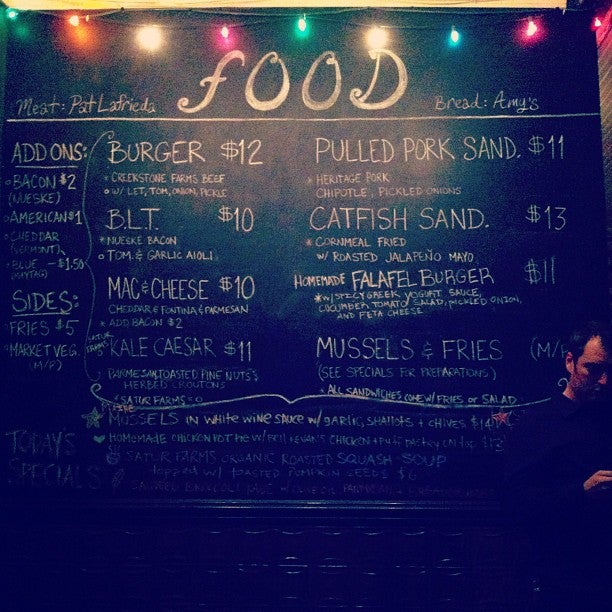 FOOD
Meat: Pat Lafrieda
Bread: Amy's
ADD ONS:
BACON $2
(NUESKE)
AMERICAN $1
CHEDDAR
(VERMONT)
BLUE — $1.50
(MAYTAG)
SIDES:
FRIES $5
MARKET VEG.
(M/P)
BURGER $12
* CREEKSTONE FARMS BEEF
o W/ LET, TOM, ONION, PICKLE
B.L.T. $10
* NUESKE BACON
o TOM & GARLIC AIOLI
MAC & CHEESE $10
CHEDDAR & FONTINA & PARMESAN
* ADD BACON $2
SATUR FARMS KALE CAESAR $11
PARMESAN TOASTED PINE NUTS &
HERBED CROUTONS
*SATUR FARMS
PULLED PORK SAND. $11
* HERITAGE PORK
CHIPOTLE, PICKLED ONIONS
CATFISH SAND. $13
* CORNMEAL FRIED
W/ ROASTED JALAPEÑO MAYO
HOMEMADE FALAFEL BURGER $11
*W/ SPICY GREEK YOGURT SAUCE,
CUCUMBER TOMATO SALAD, PICKLED ONION,
AND FETA CHEESE
MUSSELS & FRIES (M/P
(SEE SPECIALS FOR PREPARATIONS)
* ALL SANDWICHES COME W/ FRIES OR SALAD
TODAY'S
SPECIALS
MUSSELS IN WHITE WINE SAUCE W/ GARLIC, SHALLOTS + CHIVES $14
HOMEMADE CHICKEN POT PIE W/ BELL & EVANS CHICKEN + puff pastry on top $13
SATUR FARMS ORGANIC ROASTED SQUASH SOUP
topped w/ TOASTED PUMPKIN SEEDS $6